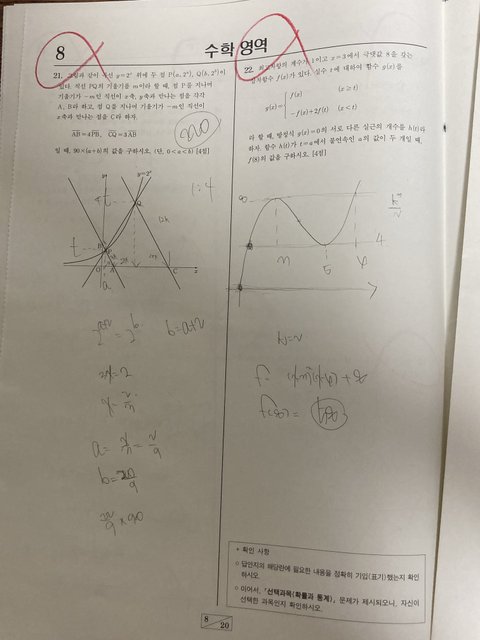 8
수학 영역
21. 그림과 같이 곡선 y=2ˣ 위에 두 점 P(a, 2ᵃ), Q(b, 2ᵇ)이
있다. 직선 PQ의 기울기를 m이라 할 때, 점 P를 지나며
기울기가 −m인 직선이 x축, y축과 만나는 점을 각각
A, B라 하고, 점 Q를 지나며 기울기가 −m인 직선이
x축과 만나는 점을 C라 하자.
AB=4PB, CQ=3AB
일 때, 90×(a+b)의 값을 구하시오. (단, 0<a<b) [4점]
220
1:4
y=2ˣ
4t
t
Q
A
C
O
a
b=a+2
a=
b=
×90
22. 최고차항의 계수가 1이고 x=3에서 극댓값 8을 갖는
삼차함수 f(x)가 있다. 실수 t에 대하여 함수 g(x)를
g(x)= f(x) (x≥t)
−f(x)+2f(t) (x<t)
라 할 때, 방정식 g(x)=0의 서로 다른 실근의 개수를 h(t)라
하자. 함수 h(t)가 t=a에서 불연속인 a의 값이 두 개일 때,
f(8)의 값을 구하시오. [4점]
8
4
5
f=
f(8)=
* 확인 사항
○ 답안지의 해당란에 필요한 내용을 정확히 기입(표기)했는지 확인
하시오.
○ 이어서, 「선택과목(확률과 통계)」 문제가 제시되오니, 자신이
선택한 과목인지 확인하시오.
8
20